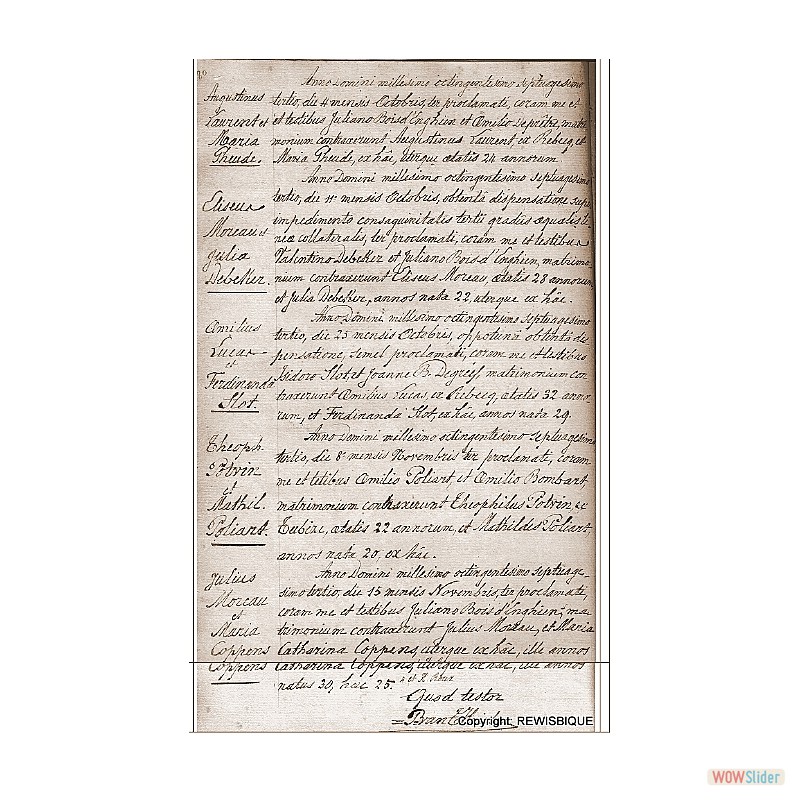 Augustinus
Laurent et
Maria
Pheude.
Anno Domini millesimo octingentesimo septuagesimo
tertio, die 4 mensis Octobris, ter proclamati, coram me et
et testibus Juliano Bois d'Enghein et Amilio matri
monium contraxerunt Augustinus Laurent, ex Rebecq, et
Maria Pheude, ex hâc, uterque ætatis 24 annorum.
Eliseus
Moreau et
Julia
Debecker.
Anno Domini millesimo octingentesimo septuagesimo
tertio, die 11 mensis Octobris, obtentâ dispensatione super
impedimento consaguinitatis tertii gradus æqualis li
neæ collateralis, ter proclamati, coram me et testibus
Valentino Debecker et Juliano Bois d'Enghien, matrimo
nium contraxerunt Eliseus Moreau, ætatis 28 annorum
et Julia Debecker, annos nata 22, uterque ex hâc.
Æmilius
Lucas
et
Ferdinanda
Slot.
Anno Domini millesimo octingentesimo septuagesimo
tertio, die 25 mensis Octobris, obtentâ dis
pensatione, semel proclamati, coram me et testibus
Isidoro Slot, et Joanne B. matrimonium con
traxerunt Æmilius Lucas, ex Rebecq, ætatis 32 anno
rum, et Ferdinanda Slot, ex hâc, annos nata 29.
Theoph.
Potvin
et
Mathil.
Poliart.
Anno Domini millesimo octingentesimo septuagesimo
tertio, die 8 mensis Novembris ter proclamati, coram
me et tetibus Æmilio Poliart, et Æmilio Bombart
matrimonium contraxerunt Theophilus Potvin, ex
Tubize, ætatis 22 annorum, et Mathildes Poliart,
annos nata 20, ex hâc.
Julius
Moreau
et
Maria
Coppens
Anno Domini millesimo octingentesimo septuage_
simo tertio, die 15 mensis Novembris, ter proclamati,
coram me et testibus Juliano Bois d'Enghien, ma
trimonium contraxerunt Julius Moreau, et Maria
Catharina Coppens, uterque ex hâc, ille annos
Coppens
Catharina Coppens, uterque ex hâc, ille annos
natus 30, hæc 25.
Quod testor
Copyright: REWISBIQUE
WOWSlider